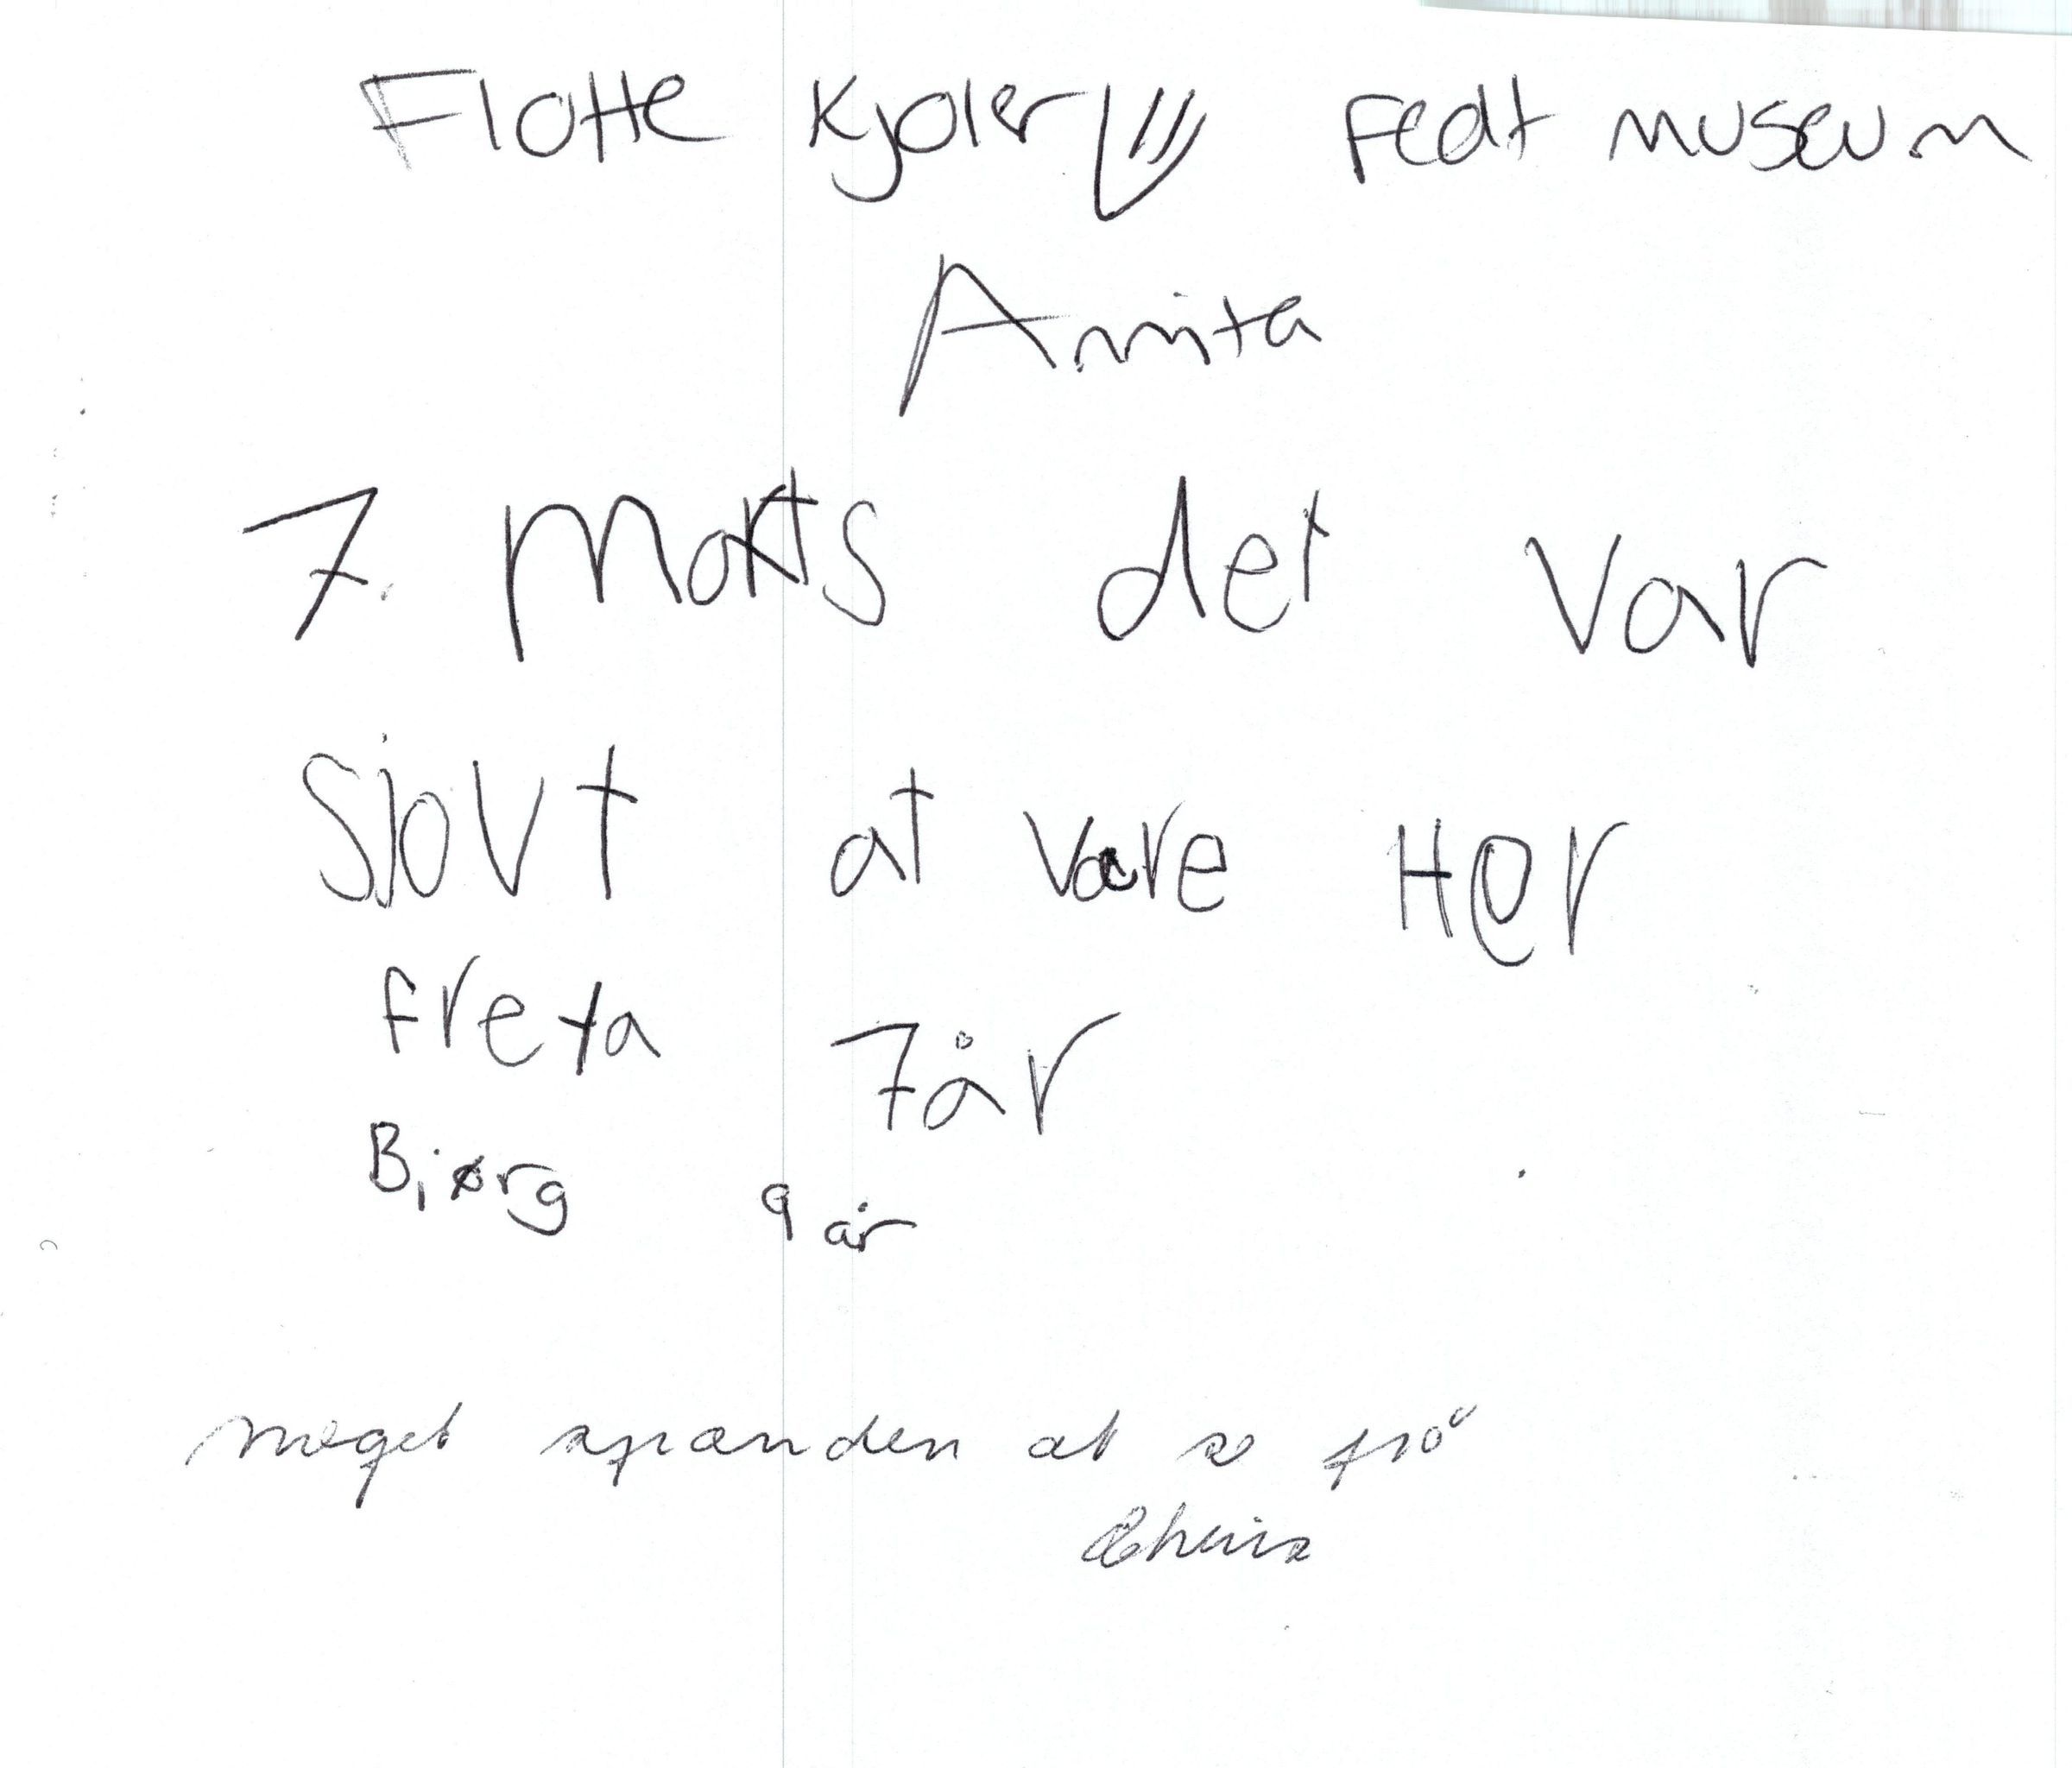 Flotte Kjoler Fedt museum
Annita
7. Marts det var
Sjovt at være Her
freya 7 år
Bjørg 9 år
meget spænden at se på